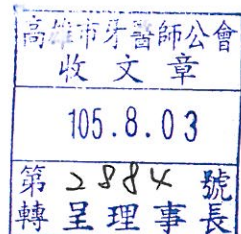 高雄市牙醫師公會
收文章
105.8.03
第2884號
轉呈理事長